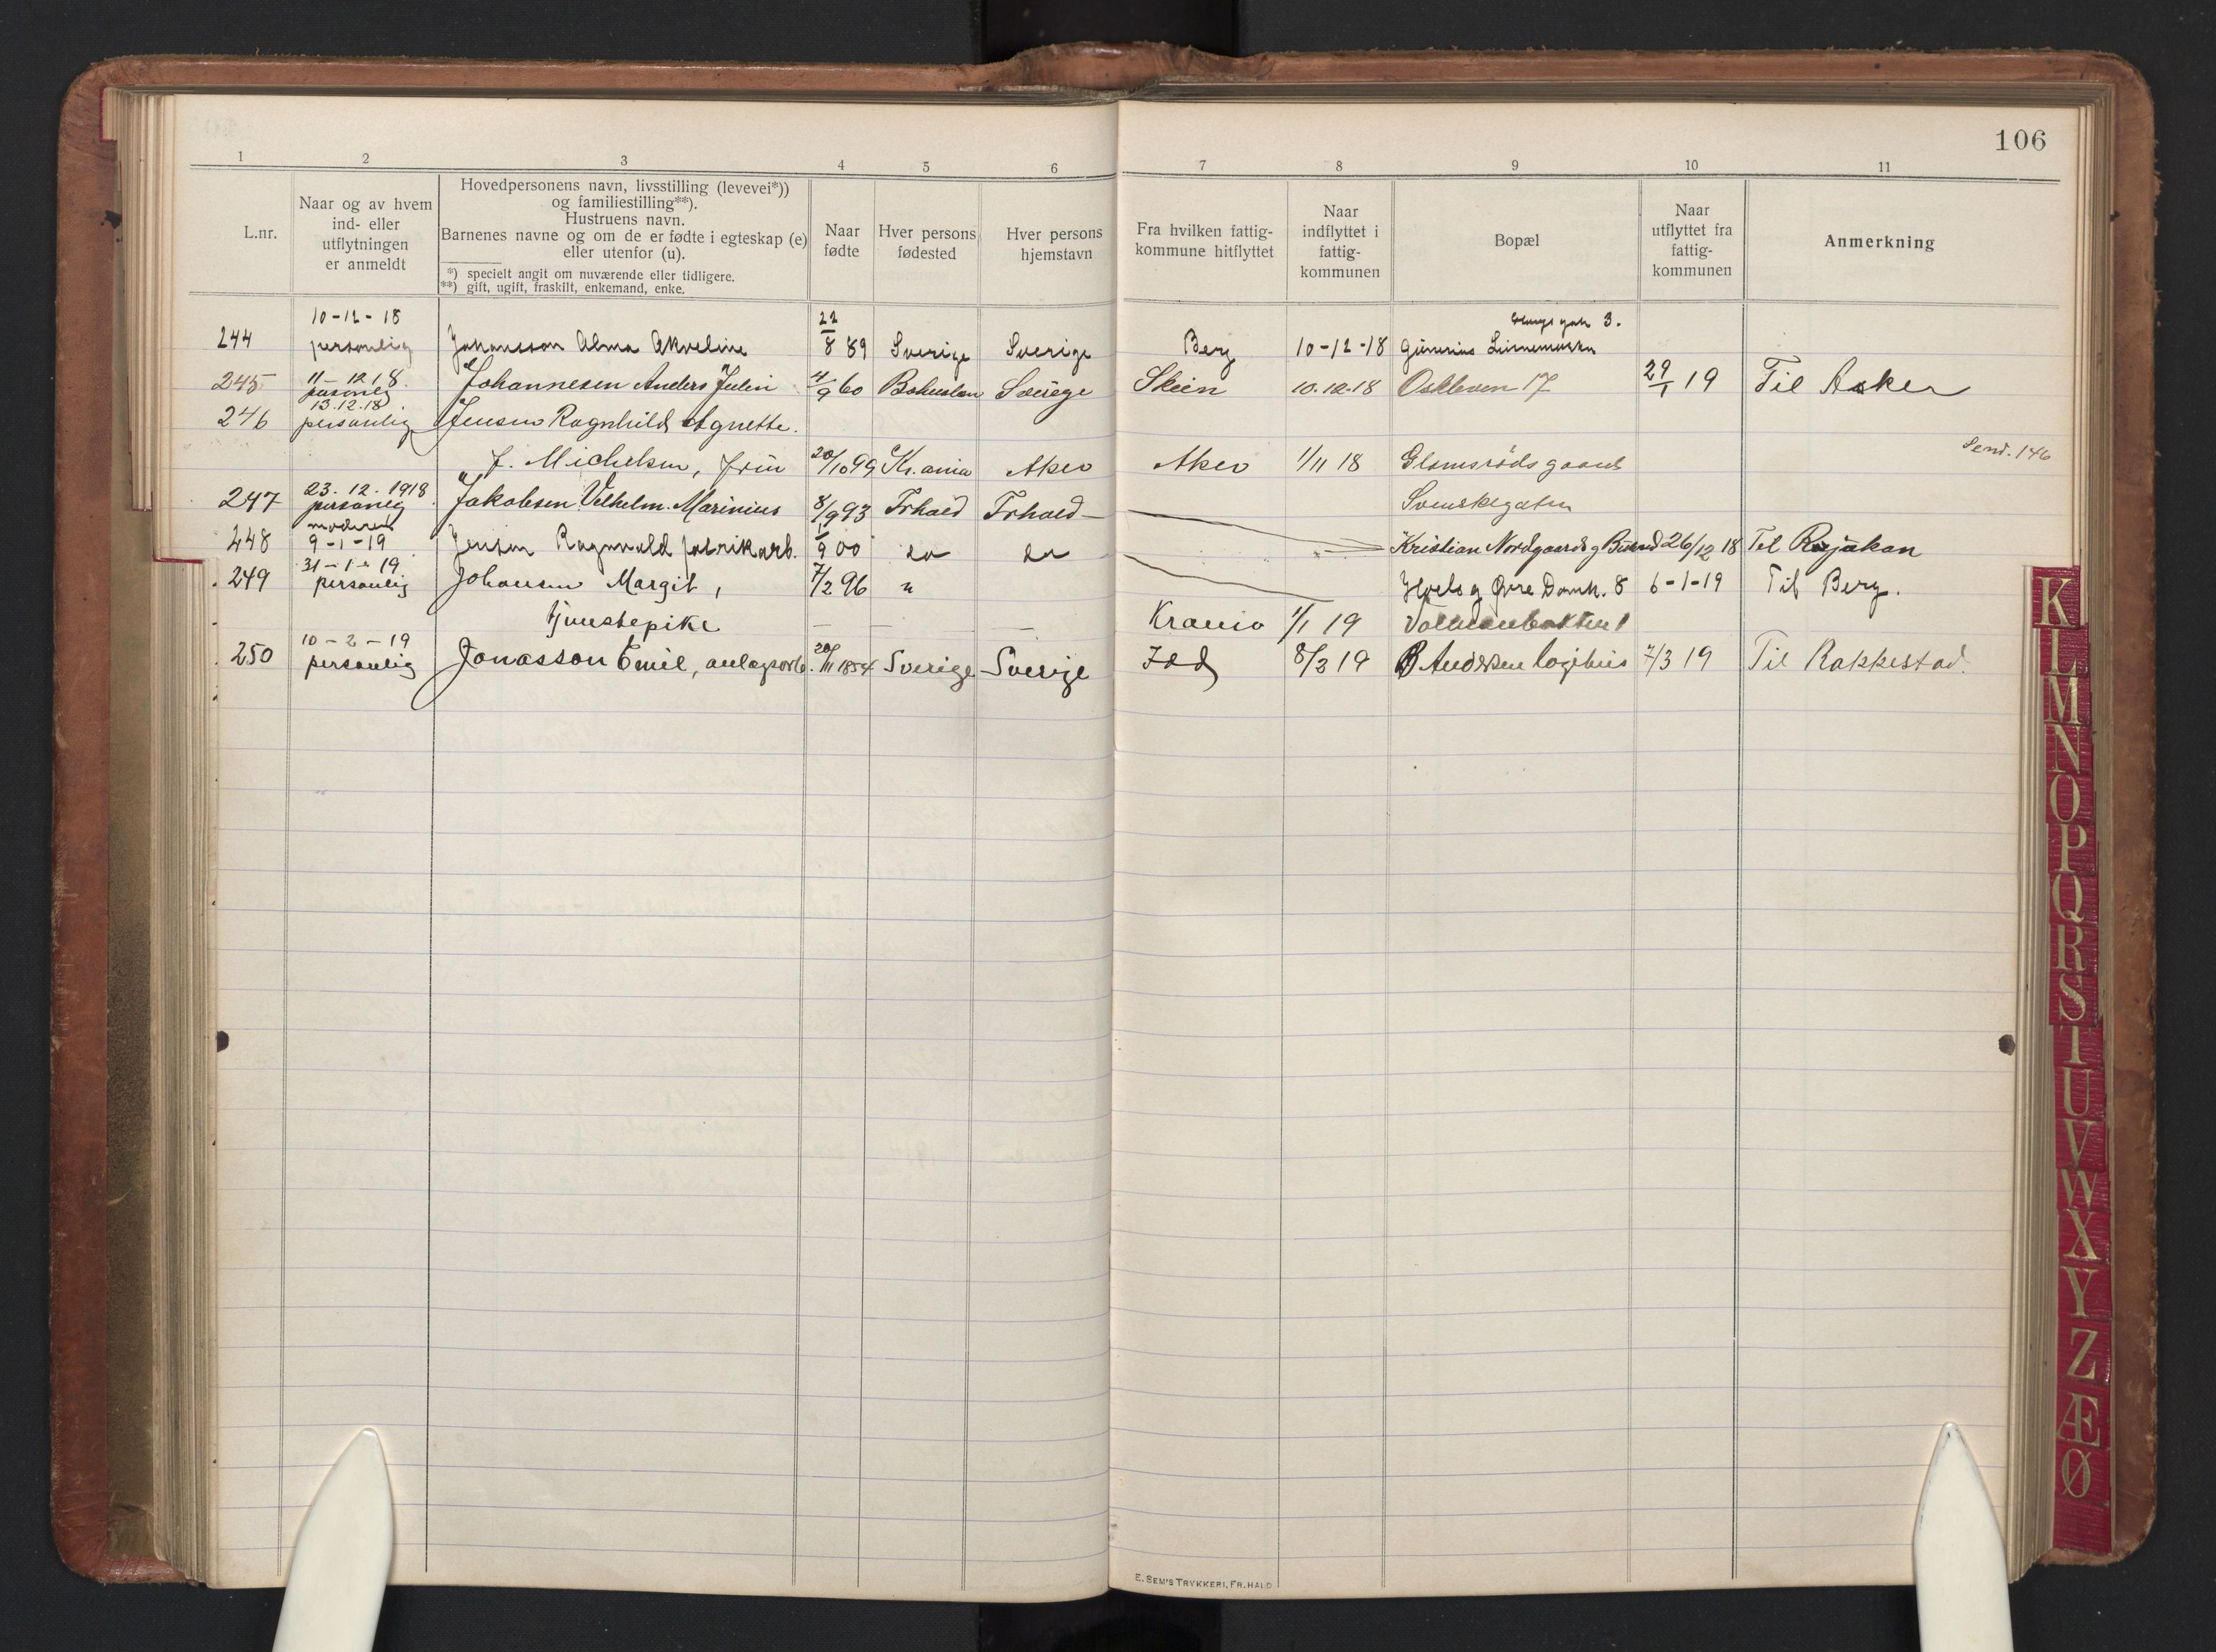 106
1 2 3 4 5 6 7 8 9 10 11
L.nr.
Naar og av hvem
ind- eller
utflytningen
er anmeldt
Hovedpersonens navn, livsstilling (levevei*))
og familiestilling**).
Hustruens navn.
Barnenes navne og om de er fødte i egteskap (e)
eller utenfor (u).
*) specielt angit om nuværende eller tidligere.
**) gift, ugift, fraskilt, enkemand, enke.
Naar
fødte
Hver persons
fødested
Hver persons
hjemstavn
Fra hvilken fattig-
kommune hitflyttet
Naar
indflyttet i
fattig-
kommunen
Bopæl
Naar
utflyttet fra
fattig-
kommunen
Anmerkning
10-12-18 22 3.
244 personlig Johansson Alma 8 89 Sverige Sverige Berg 10-12-18
11-12 18.
245 personlig Johannesen Anders Julin 4/9 60 Bohuslan Sverige Skien 10.12.18 Oskleven 17 29/1 19 Til Asker
13.12.18
246 personlig Jensen Ragnhild Agnette.
f. Michelsen, frue 20/10 99 Kr.ania Aker Aker 1/11 18 Glomsrødsgaard Send. 146
23.12.1918
247 personlig Jakobsen Vilhelm Marinius 8/9 93 Frhald Frhald — Svenskegaten
moderen
248 9-1-19 Jensen Ragnvald fabrikarb. 1/9 00 do do Kristian Nordgaardsg 26/12 18 Til Rjukan
31-1-19
249 personlig Johansen Margit, 7/2 96 " 8 6-1-19 Til Berg.
tjenestepike — — — Krania 1/1 19
10-2-19
250 personlig Jonasson Emil, anlagsarb. 20/11 1854 Sverige Sverige Idd 8/2 19 B Andersen logihus 7/3 19 Til Rakkestad.
E. SEM'S TRYKKERI, FR.HALD
K
L
M
N
O
P
Q
R
S
T
U
V
W
X
Y
Z
Æ
Ø